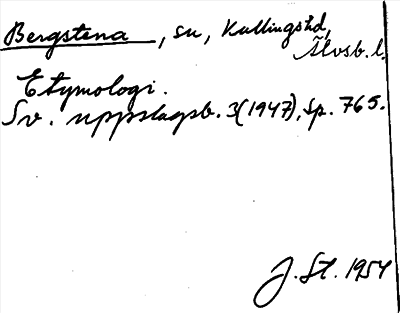 Bergstena, sn, Kullingshd,
Älvsb. l.
Etymologi.
Sv. uppslagsb. 3(1947), sp. 765.
J. St. 1954